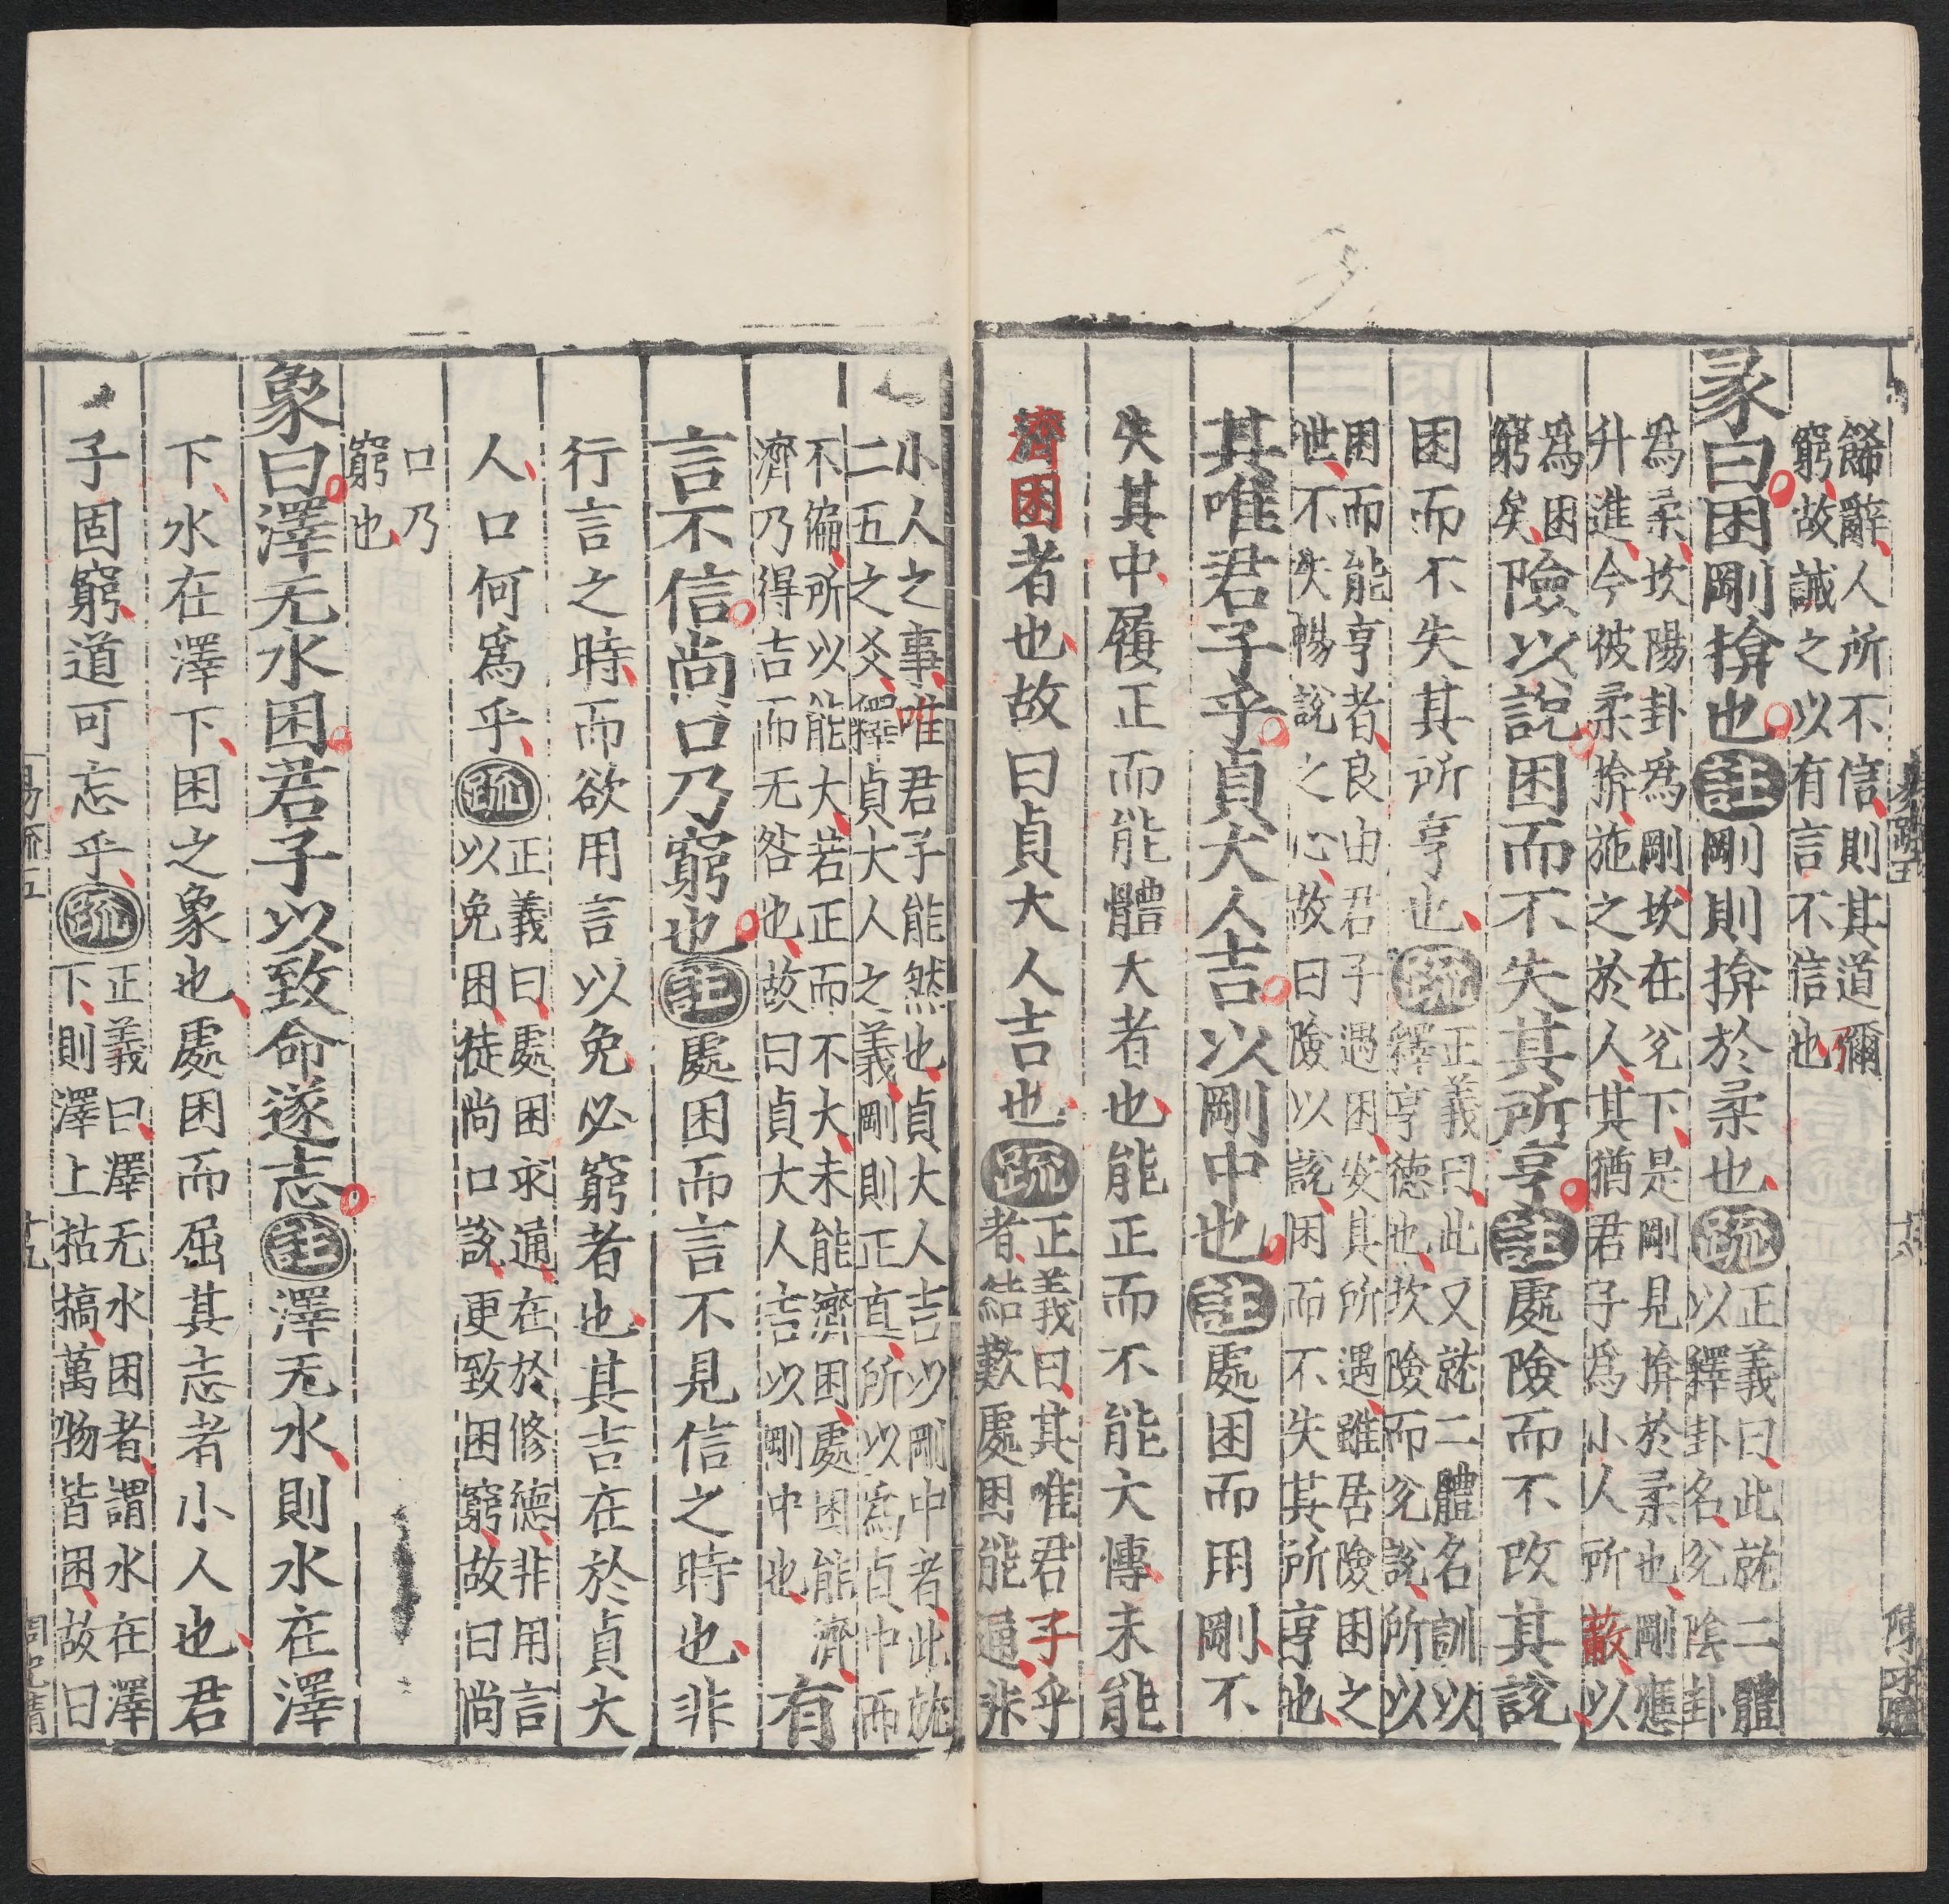 餙辭人所不信則其道彌
窮故誡之以有言不信也
彖曰困剛揜也註剛則揜於柔也疏正義曰此就二體
以釋卦名兊陰卦
為柔坎陽卦為剛坎在兊下是剛見揜於柔也剛應
升進今彼柔揜施之於人其猶君子為小人所蔽以
為困
窮矣險以說困而不失其所亨註處險而不改其說
困而不失其所亨也疏正義曰此又就二體名訓以
釋亨德也坎險而兊說所以
困而能亨者良由君子遇困安其所遇雖居險困之
世不失暢說之心故曰險以說困而不失其所亨也
其唯君子乎貞大人吉以剛中也註處困而用剛不
失其中履正而能體大者也能正而不能大博未能
濟困者也故曰貞大人吉也疏正義曰其唯君子乎
者結歎處困能通非
小人之事唯君子能然也貞大人吉以剛中者此就
二五之爻釋貞大人之義剛則正直所以為貞中而
不偏所以能大若正而不大未能濟困處困能濟
濟乃得吉而无咎也故曰貞大人吉以剛中也有
言不信尚口乃窮也註處困而言不見信之時也非
行言之時而欲用言以免必窮者也其吉在於貞大
人口何為乎疏正義曰處困求通在於修德非用言
以免困徒尚口說更致困窮故曰尚
口乃
窮也
象曰澤无水困君子以致命遂志註澤无水則水在澤
下水在澤下困之象也處困而屈其志者小人也君
子固窮道可忘乎疏正義曰澤无水困者謂水在澤
下則澤上枯槁萬物皆困故曰
易疏五
十九